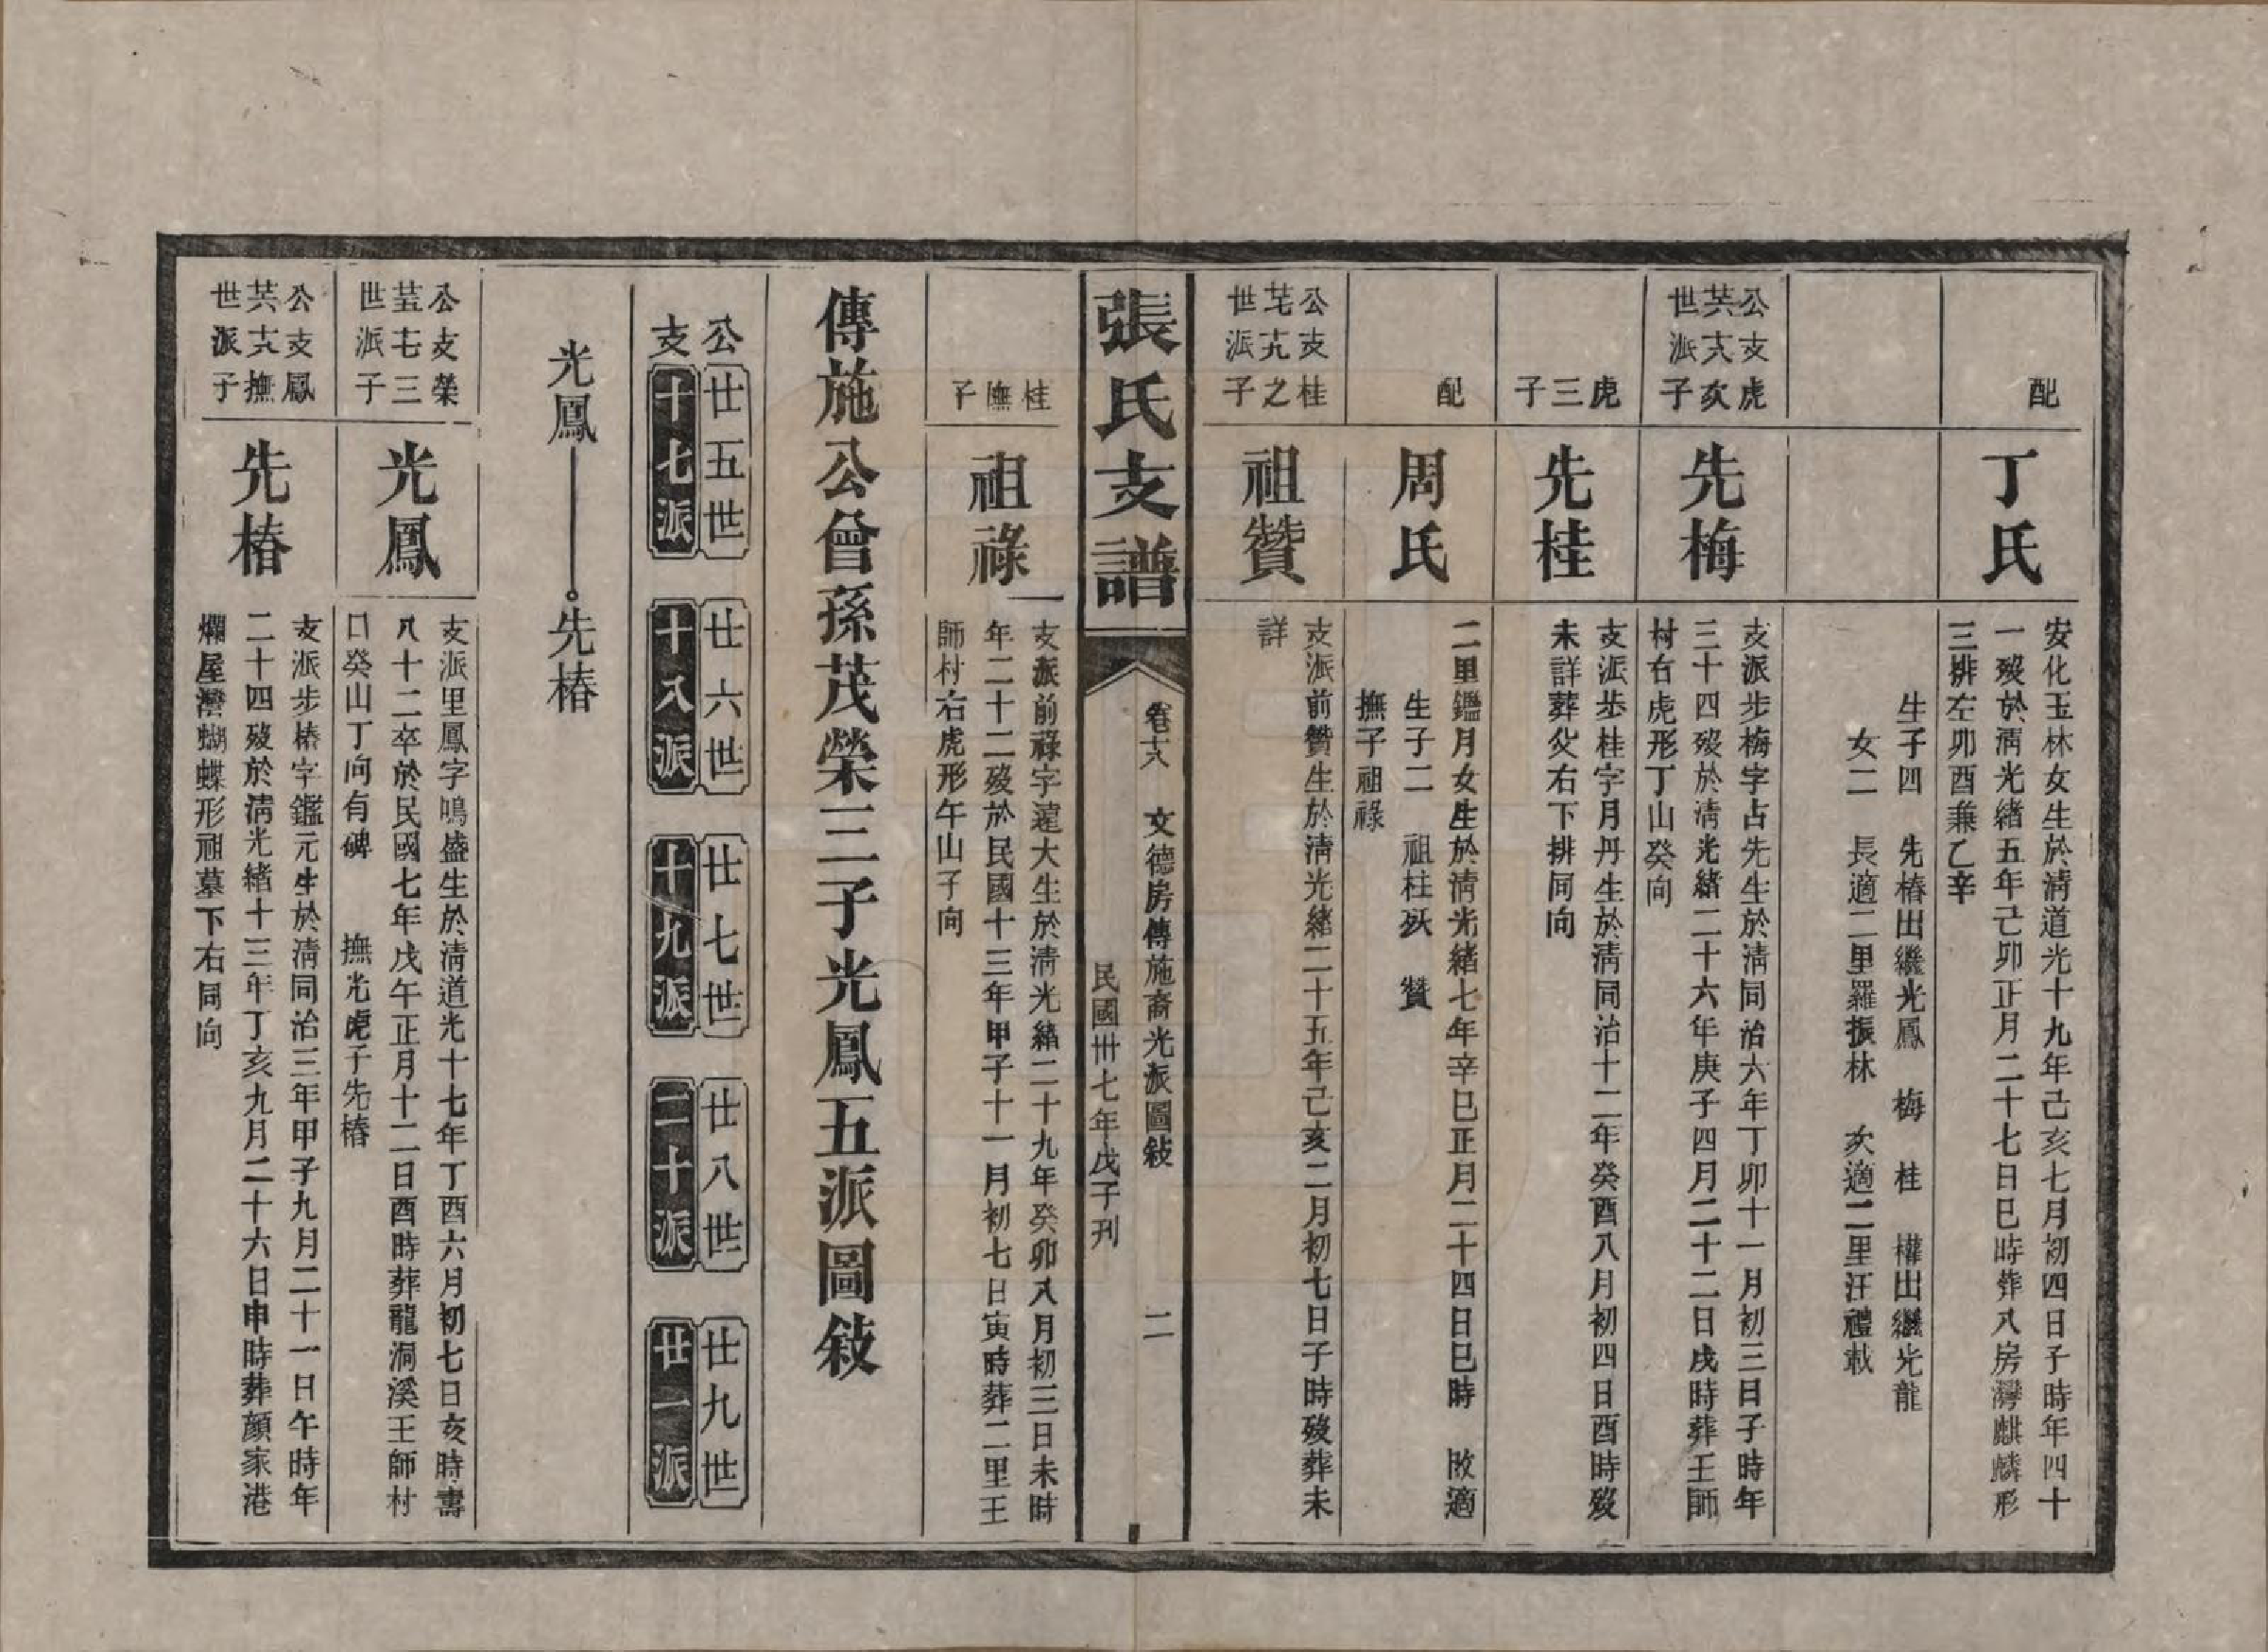 配
丁氏
安化玉林女生於淸道光十九年己亥七月初四日子時年四十
一殁於淸光緖五年己卯正月二十七日巳時葬八房灣麒麟形
三排左卯酉兼乙辛
生子四 先椿出繼光鳳 梅 桂 權出繼光龍
女二 長適二里羅振林 次適二里汪禮載
公支虎
共六次
世派子
先梅
支派步梅字占先生於淸同治六年丁卯十一月初三日子時年
三十四殁於淸光緖二十六年庚子四月二十二日戌時葬王師
村右虎形丁山癸向
虎三子
先桂
支派步桂字月丹生於淸同治十二年癸酉八月初四日酉時殁
未詳葬父右下排同向
配
周氏
二里鑑月女生於淸光緖七年辛巳正月二十四日巳時 改適
生子二 祖柱殀 贊
撫子祖祿
公支桂
之
世派子
祖贊
支派前贊生於淸光緖二十五年己亥二月初七日子時殁葬未
詳
張氏支譜
卷十八 文德房傳施裔光派圖敍 二
民國卅七年戊子刊
桂撫子
祖祿
支派前祿字達大生於淸光緖二十九年癸卯八月初三日未時
年二十二殁於民國十三年甲子十一月初七日寅時葬二里王
師村右虎形午山子向
傳施公曾孫茂榮三子光鳳五派圖敍
公支
廿五世 十七派
廿六世 十八派
廿七世 十九派
廿八世 二十派
廿九世 廿一派
光鳳 先椿
公支榮
三
世派子
光鳳
支派里鳳字鳴盛生於淸道光十七年丁酉六月初七日亥時壽
八十二卒於民國七年戊午正月十二日酉時葬龍洞溪王師村
口癸山丁向有碑 撫光虎子先椿
公支鳳
撫
世派子
先椿
支派步椿字鑑元生於淸同治三年甲子九月二十一日午時年
二十四殁於淸光緖十三年丁亥九月二十六日申時葬顏家港
爛屋灣蝴蝶形祖墓下右同向